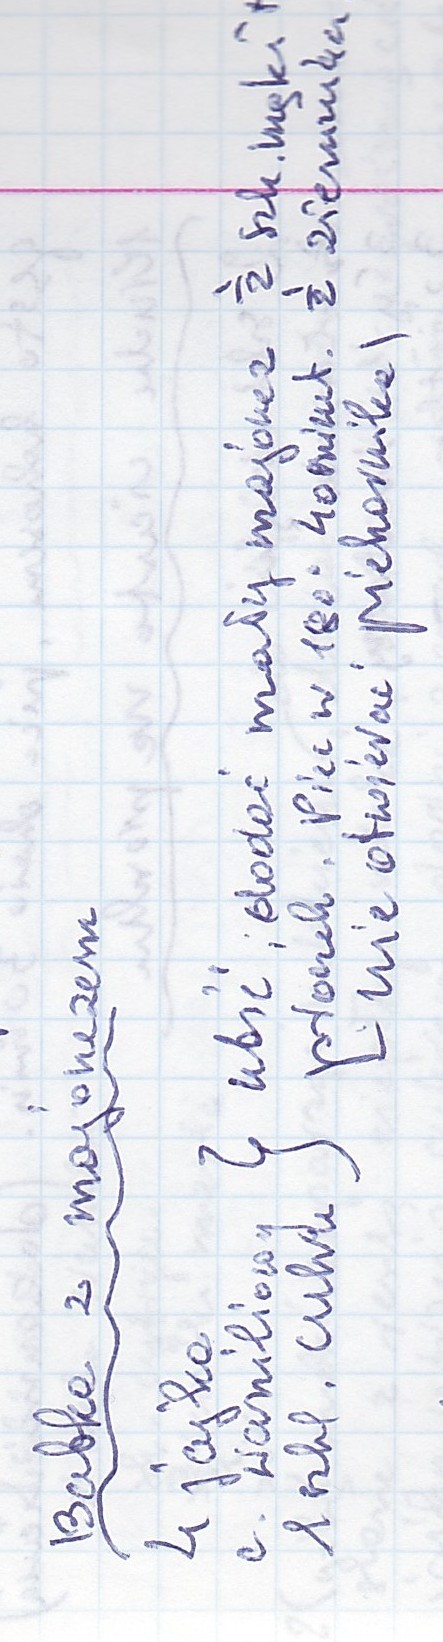 Babka z majonezem
4 jajka
c. waniliowy } ubić, dodać mały majonez ½ szk. mąki +
1 szkl. cukru proszek. Piec w 180° 40 minut. ½ ziemniacz
nie otwierać piekarnika